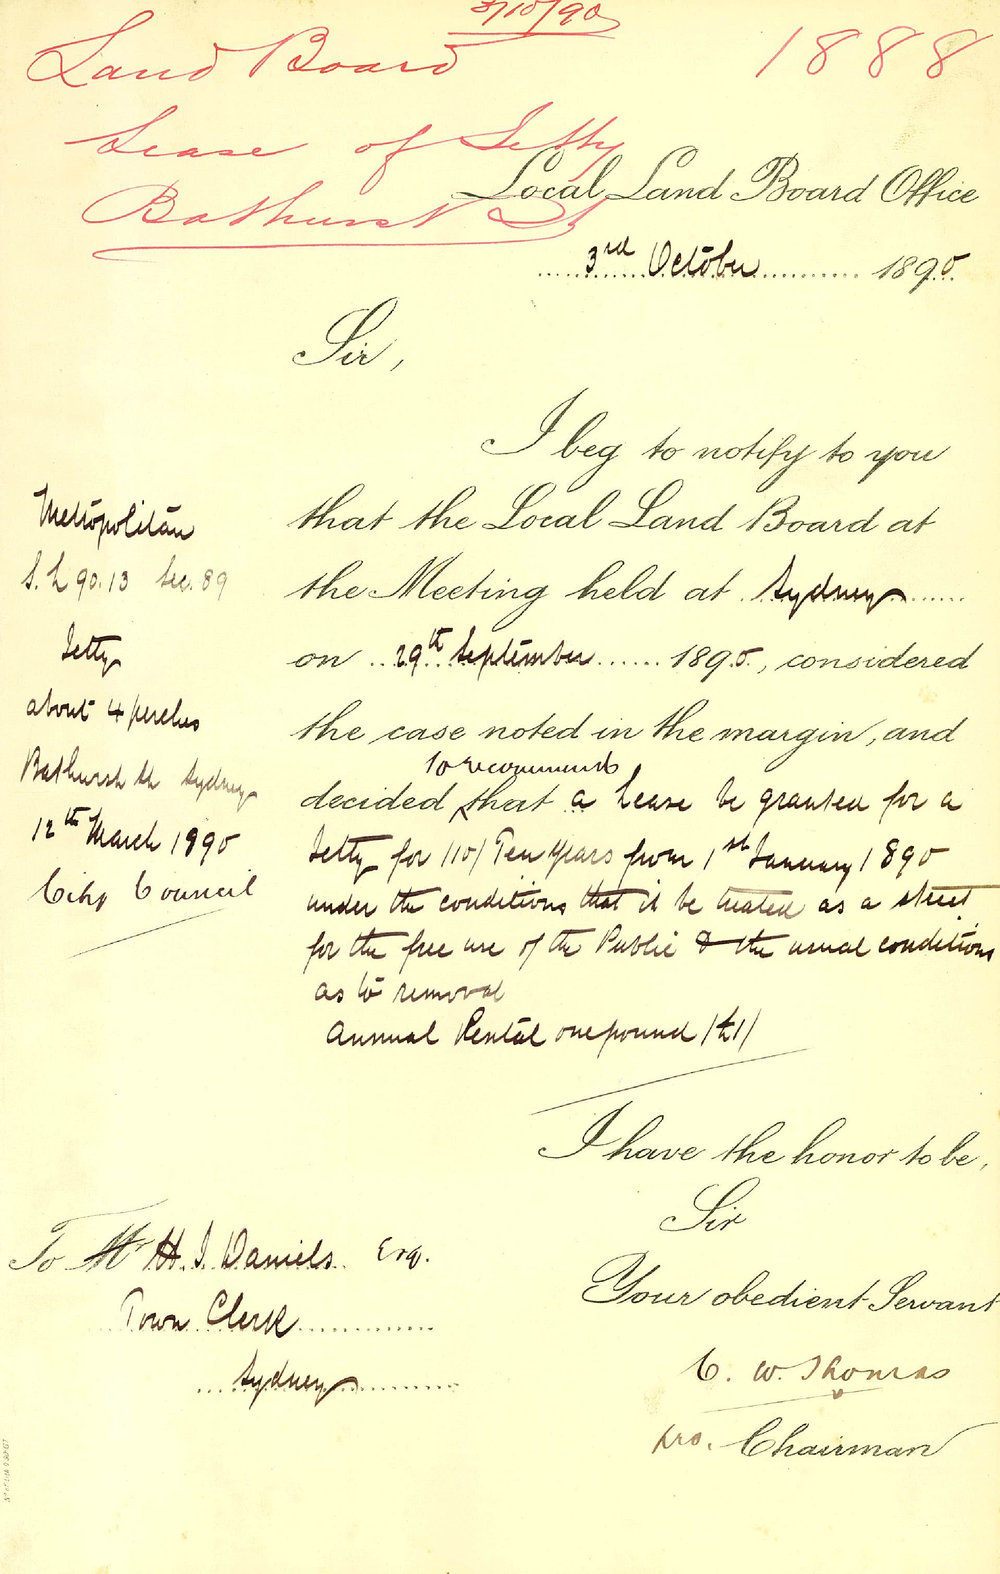 3/10/90
Land Board
1888
Lease of Jetty
Bathurst St
Local Land Board Office
3rd October 1890
Sir,
I beg to notify to you
that the Local Land Board at
the Meeting held at Sydney
on 29th September 1890, considered
the case noted in the margin, and
to recommend
decided that a Lease be granted for a
Jetty for /10/ Ten Years from 1st January 1890
under the conditions that it be treated as a street
for the free use of the Public & the usual conditions
as to removal
Annual Rental one pound /£1/
Metropolitan
S. L 90.13 Sec. 89
Jetty
about 4 perches
Bathurst St Sydney
12th March 1890
City Council
I have the honor to be,
Sir
Your obedient Servant
C. W. Thomas
pro. Chairman
To Mr H. J. Daniels Esq.
Town Clerk
Sydney